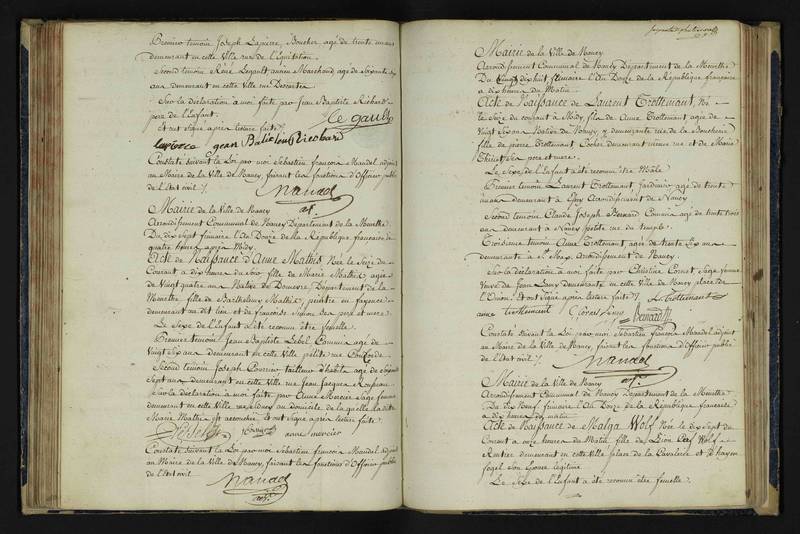 Premier temoin Joseph Lapierre, Boucher agé de trente un ans
demeurant en cette Ville rue de l'Equitation.
Second temoin René Legault ancien Marchand agé de Soixante
ans demeurant en cette Ville rue Descartes
Sur la déclaration à moi faite par Jean Baptiste Richard
pere de l'Enfant.
Et ont signé après lecture faite
le gault
jean Batiste Richard
Constaté suivant la Loi par moi Sebastien françois Mandel adjoint
au Maire de la Ville de Nancy, faisant les fonctions d'Officier public
de l'Etat civil ./.
Mandel
adj.
Mairie de la Ville de Nancy
Arrondissement Communal de Nancy Département de la Meurthe
Du dix Sept frimaire, l'An Douze de la République française à
quatre heures après Midy.
Acte de Naissance d'Anne Mathis Née le Seize du
Courant à dix heures du soir fille de Marie Mathis agée
de Vingt quatre ans Native de Domevre, Département de la
Meurthe fille de Barthelemy Mathis, peintre en fayence
demeurant au dit lieu et de françoise Simon ses pere et mere.
Le Sexe de l'Enfant a été reconnu être femelle.
Premier temoin Jean Baptiste Lebel Commis agé de
Vingt Six ans demeurant en cette Ville petite rue
Second temoin Joseph tailleur d'habits agé de
Sept ans demeurant en cette Ville rue Jean Jacques Rousseau
Sur la déclaration à moi faite par Anne Mercier Sage femme
demeurant en cette Ville rue au domicile de laquelle la dite
Marie Mathis est accouchée. Et ont signé après lecture faite
anne mercier
Constaté Suivant la Loi par moi Sebastien françois Mandel adjoint
au Maire de la Ville de Nancy, faisant les fonctions d'Officier public
de l'Etat civil
Mandel
adj.
Mairie de la Ville de Nancy
Arrondissement Communal de Nancy Département de la Meurthe
Du dix huit frimaire l'An Douze de la République française
à dix heures du Matin
Acte de Naissance de Laurent Trottemant, Né
le Seize du courant à Midy, fils de Anne Trottemant agée de
Vingt Six ans Native de demeurante rue de la Boucherie
fille de pierre Trottemant Cocher demeurant même rue et de Marie
ses pere et mere.
Le Sexe de l'Enfant a été reconnu être Mâle
Premier temoin Laurent Trottemant Jardinier agé de trente
ans demeurant à Arrondissement de Nancy.
Second temoin Claude Joseph Bernard Commis agé de trente trois
ans demeurant à Nancy petite rue du temple.
Troisieme temoin Anne Trottemant agée de trente Six ans
demeurante à St. Max Arrondissement de Nancy.
Sur la déclaration à moi faite par Christine Cornet Sage femme
Veuve de Jean demeurante en cette Ville de Nancy place de
l'Union. Et ont Signé après lecture faite
L Trottemant
anne trottemant
bernard
Constaté Suivant la Loi par moi Sebastien françois Mandel adjoint
au Maire de la Ville de Nancy, faisant les fonctions d'Officier public
de l'Etat civil ./.
Mandel
adj.
Mairie de la Ville de Nancy
Arrondissement Communal de Nancy Département de la Meurthe
Du dix huit frimaire l'An Douze de la République française
à dix heures du matin
Acte de Naissance de Malga Wolf Née le dix Sept du
Courant à onze heures du Matin fille de Lion Wolf
Rentier demeurant en cette Ville place de la Cavalerie et d'hayen
fogel Son Epouse legitime
Le Sexe de l'Enfant a été reconnu être femelle.